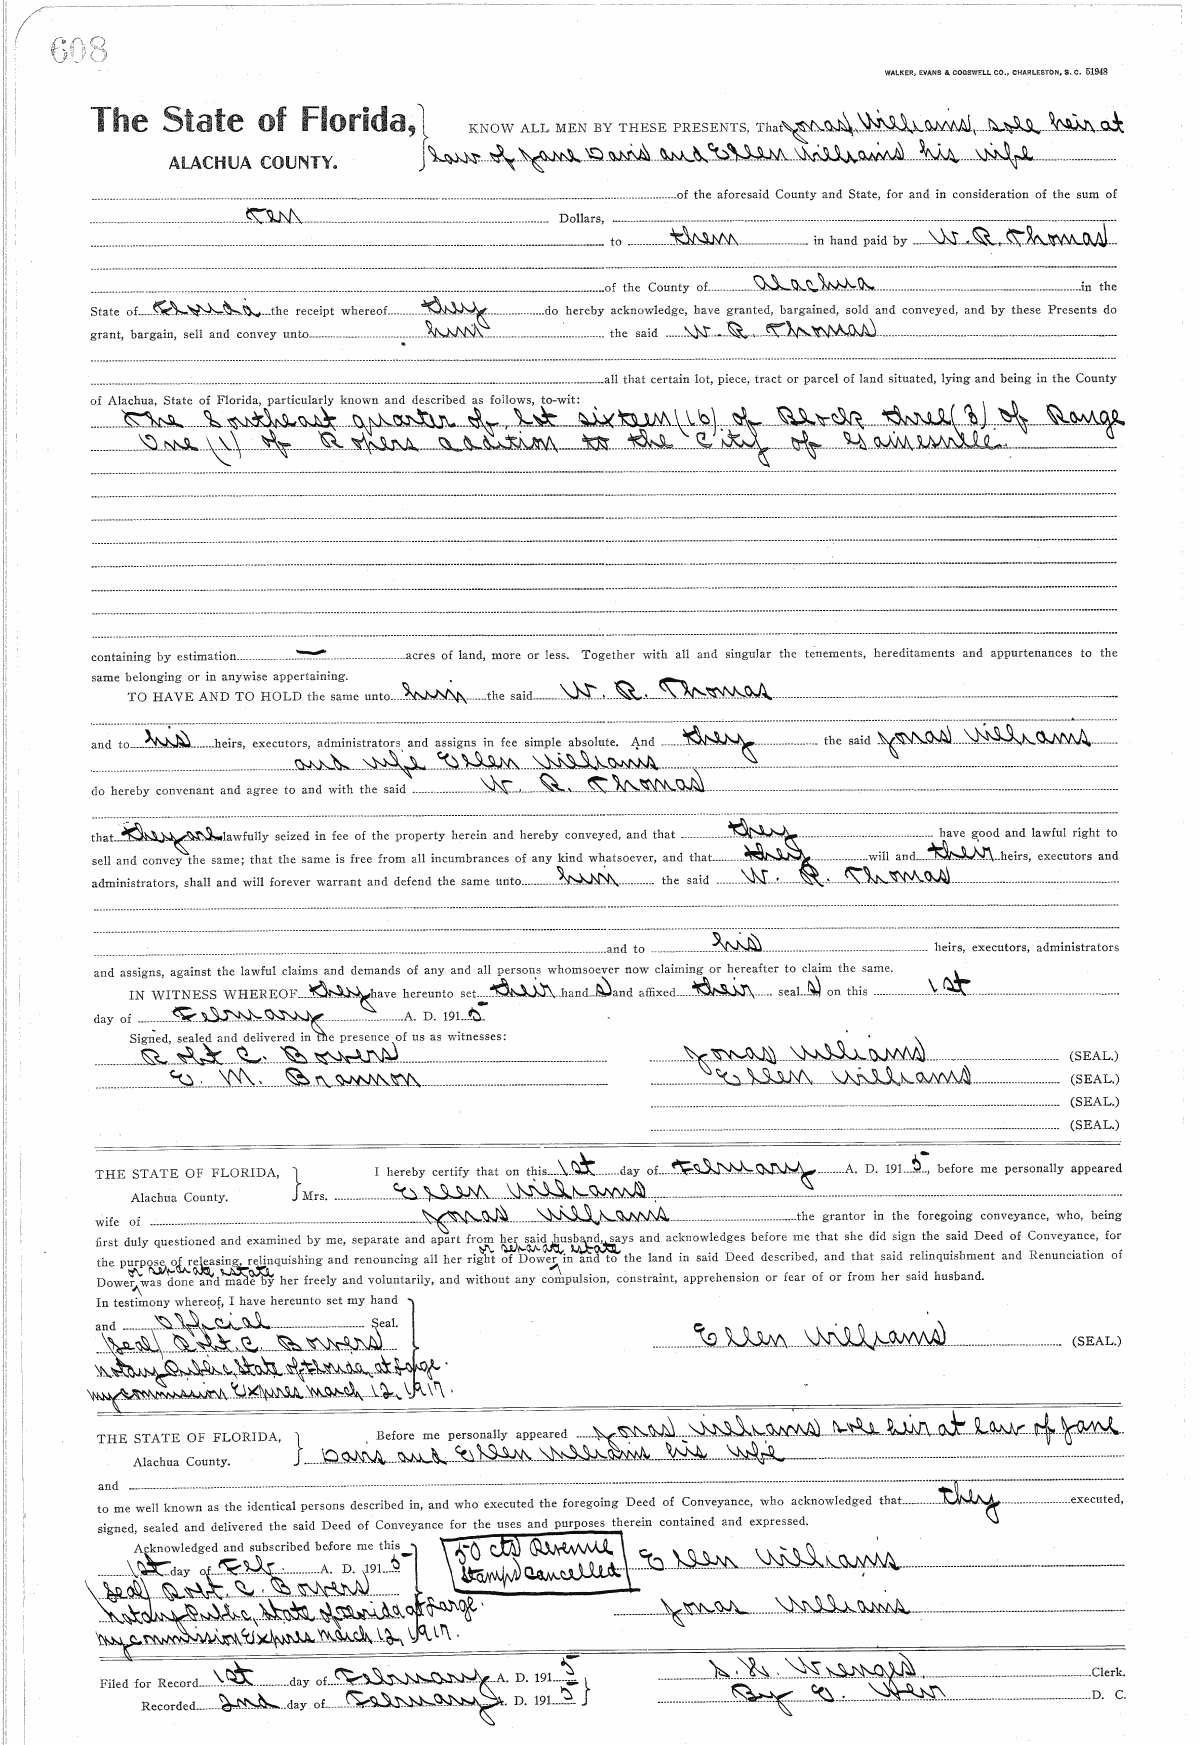 608
WALKER, EVANS & COGSWELL CO., CHARLESTON, S. C. 51948
The State of Florida, } KNOW ALL MEN BY THESE PRESENTS, That Jonas Williams, sole heir at
ALACHUA COUNTY. law of Jane Davis and Ellen Williams his wife
of the aforesaid County and State, for and in consideration of the sum of
Ten Dollars,
to them in hand paid by W. R. Thomas
of the County of Alachua in the
State of Florida the receipt whereof they do hereby acknowledge, have granted, bargained, sold and conveyed, and by these Presents do
grant, bargain, sell and convey unto him the said W. R. Thomas
all that certain lot, piece, tract or parcel of land situated, lying and being in the County
of Alachua, State of Florida, particularly known and described as follows, to-wit:
The Southeast quarter of Lot sixteen (16) of Block three (3) of Range
One (1) of Ropers addition to the City of Gainesville.
containing by estimation — acres of land, more or less. Together with all and singular the tenements, hereditaments and appurtenances to the
same belonging or in anywise appertaining.
TO HAVE AND TO HOLD the same unto him the said W. R. Thomas
and to his heirs, executors, administrators and assigns in fee simple absolute. And they the said Jonas Williams
and wife Ellen Williams
do hereby convenant and agree to and with the said W. R. Thomas
that they are lawfully seized in fee of the property herein and hereby conveyed, and that they have good and lawful right to
sell and convey the same; that the same is free from all incumbrances of any kind whatsoever, and that they will and their heirs, executors and
administrators, shall and will forever warrant and defend the same unto him the said W. R. Thomas
and to his heirs, executors, administrators
and assigns, against the lawful claims and demands of any and all persons whomsoever now claiming or hereafter to claim the same.
IN WITNESS WHEREOF they have hereunto set their hand s and affixed their seal s on this 1st
day of February A. D. 1915
Signed, sealed and delivered in the presence of us as witnesses:
Robt C. Bowers Jonas Williams (SEAL.)
E. M. Brannon Ellen Williams (SEAL.)
(SEAL.)
(SEAL.)
THE STATE OF FLORIDA, } I hereby certify that on this 1st day of February A. D. 1915, before me personally appeared
Alachua County. Mrs. Ellen Williams
wife of Jonas Williams the grantor in the foregoing conveyance, who, being
first duly questioned and examined by me, separate and apart from her said husband, says and acknowledges before me that she did sign the said Deed of Conveyance, for
or separate estate
the purpose of releasing, relinquishing and renouncing all her right of Dower in and to the land in said Deed described, and that said relinquishment and Renunciation of
or separate estate
Dower was done and made by her freely and voluntarily, and without any compulsion, constraint, apprehension or fear of or from her said husband.
In testimony whereof, I have hereunto set my hand
and Official Seal.
(Seal) Robt. C. Bowers Ellen Williams (SEAL.)
Notary Public, State of Florida, at Large.
My commission Expires March 12, 1917.
THE STATE OF FLORIDA, } Before me personally appeared Jonas Williams sole heir at law of Jane
Alachua County. Davis and Ellen Williams his wife
and
to me well known as the identical persons described in, and who executed the foregoing Deed of Conveyance, who acknowledged that they executed,
signed, sealed and delivered the said Deed of Conveyance for the uses and purposes therein contained and expressed.
Acknowledged and subscribed before me this
1st day of Feb. A. D. 1915
50 cts Revenue
Stamps Cancelled
Ellen Williams
(Seal) Robt. C. Bowers
Notary Public, State of Florida at Large. Jonas Williams
My commission Expires March 12, 1917.
Filed for Record 1st day of February A. D. 1915 S. H. Wienges Clerk.
Recorded 2nd day of February A. D. 1915 By E. Weir D. C.